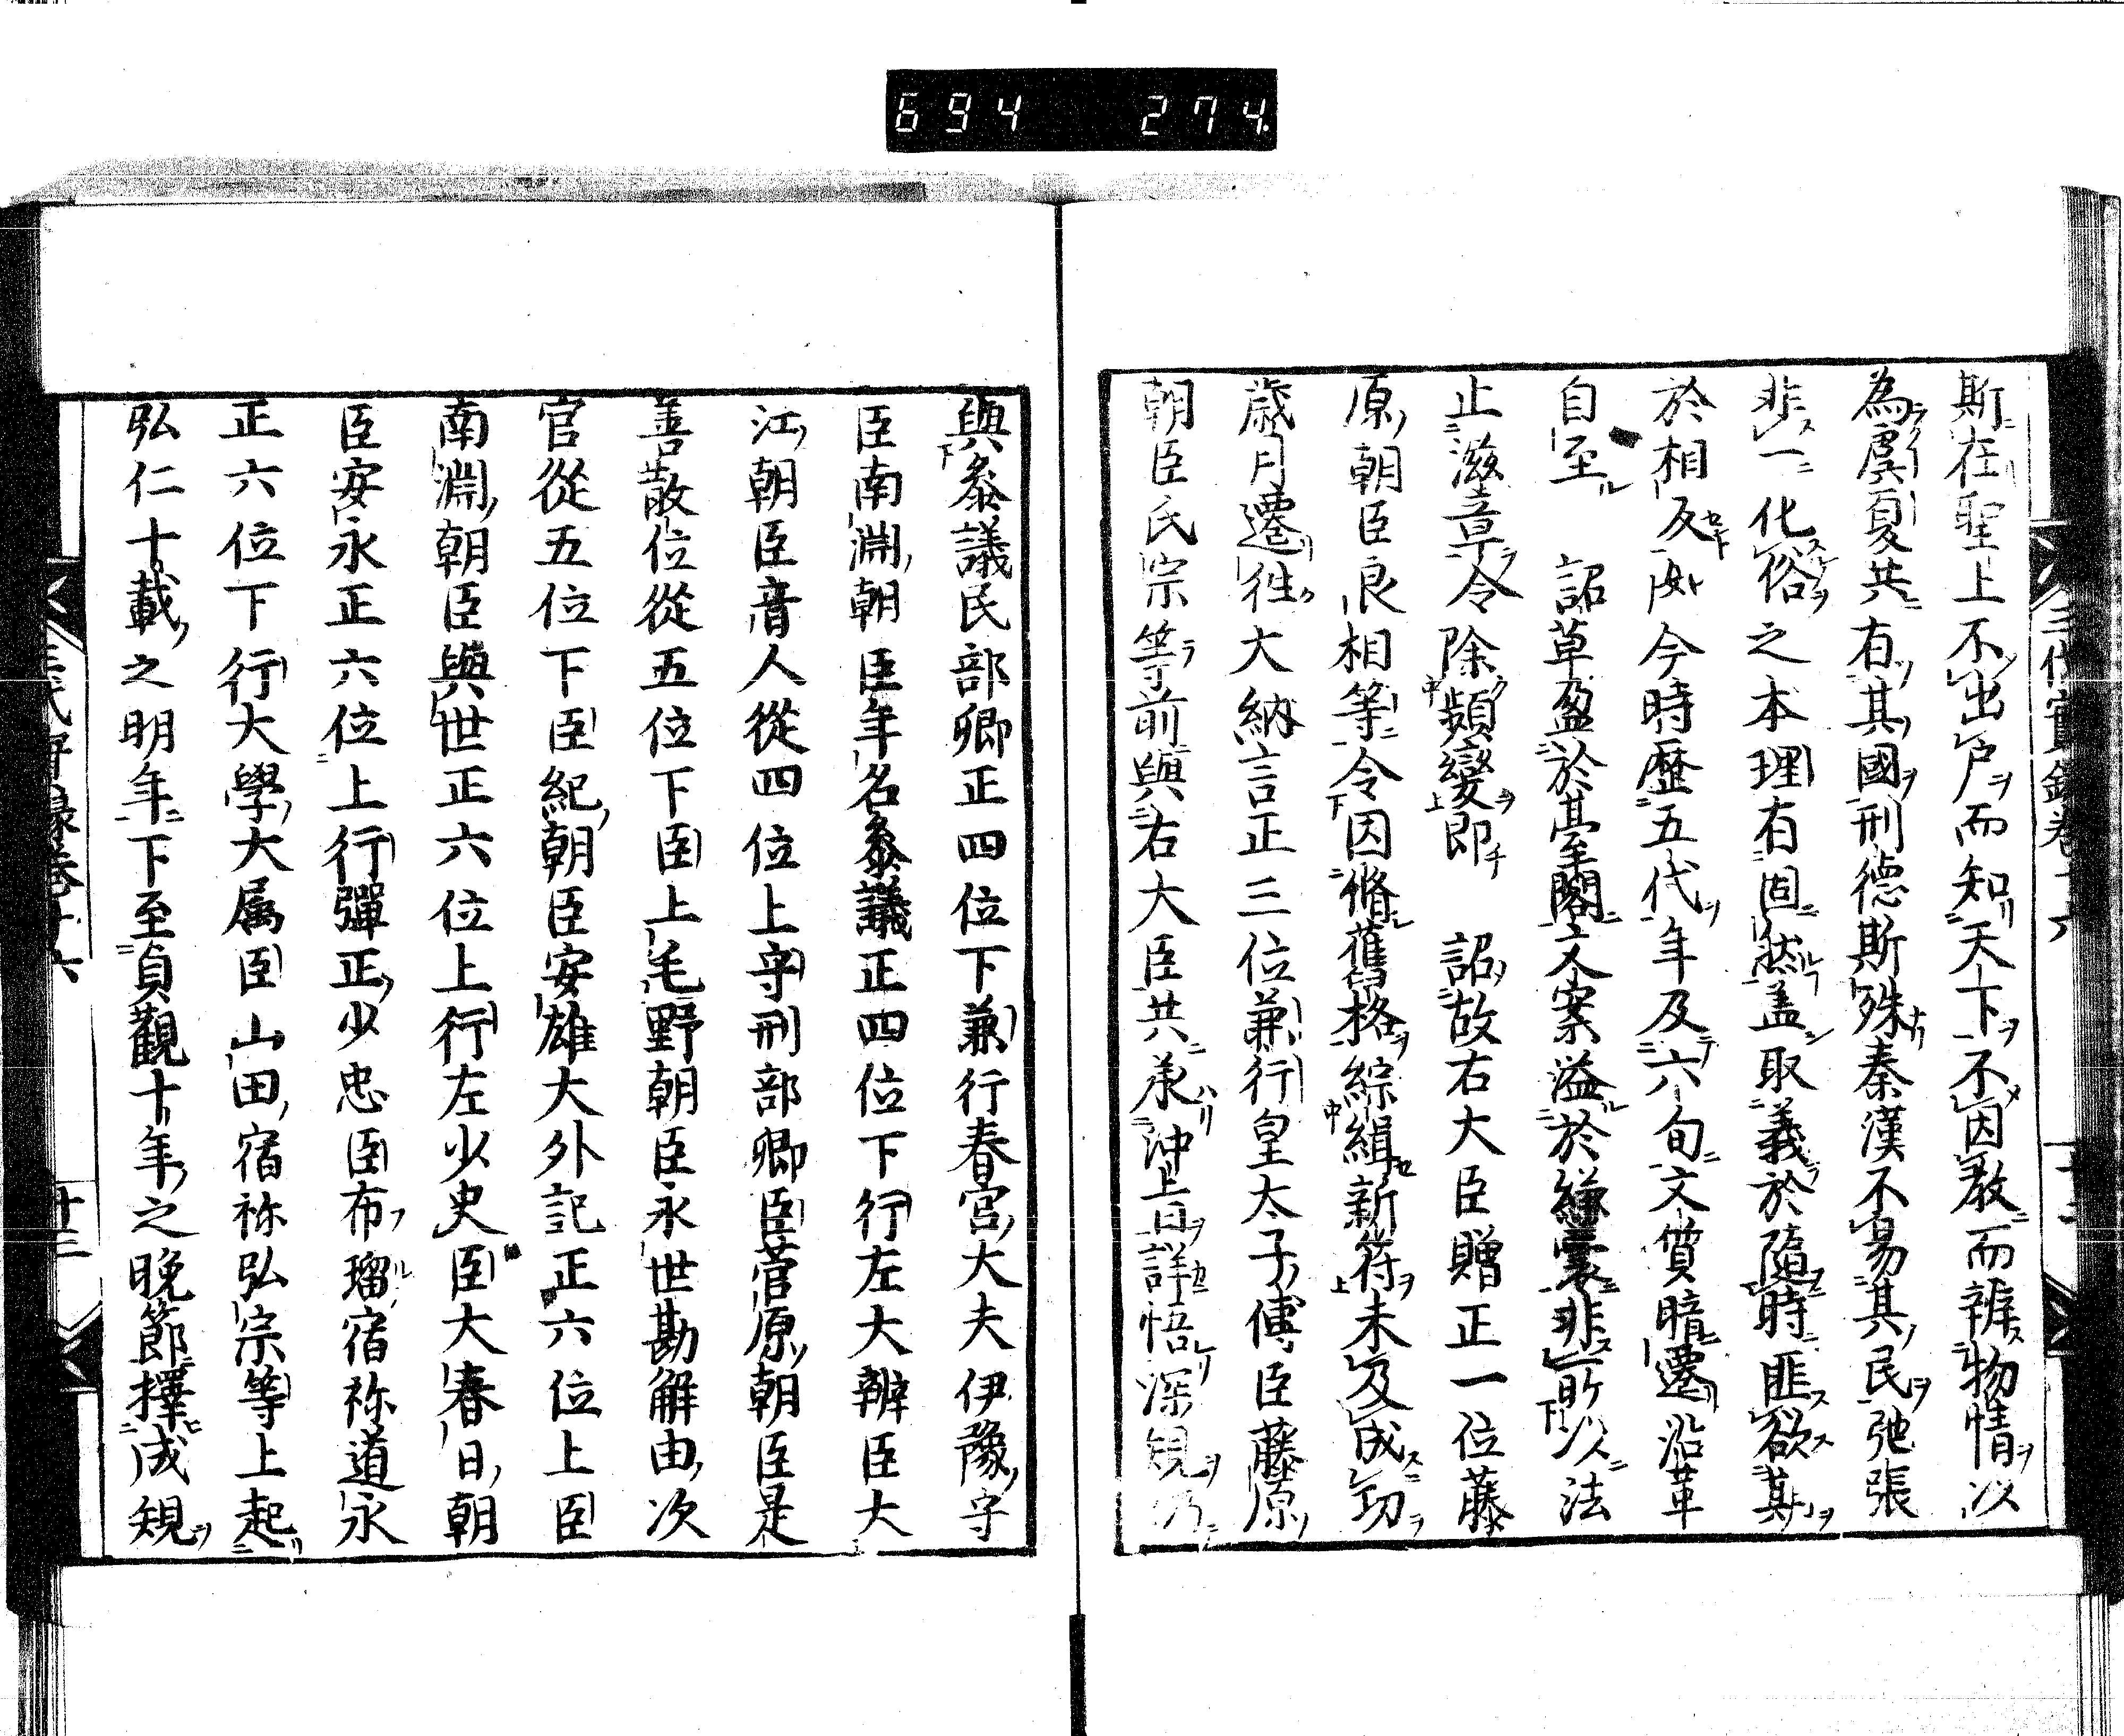 694 274
斯在聖上不出戸而知天下不因教而裤物情以
為虞夏共有其國刑德斯殊秦漢不易其民弛張
非一化俗之本理有固然盖取義於隨時匪欲其
於相反如今時歷五代年及六旬文質暗遷沿革
自至　詔草盈於臺閣文案溢於縑囊非所以法
止滋章令除頻變即　詔故右大臣贈正一位藤
原朝臣良相等令因脩舊格綜緝新符未及成功
歲月遷往大納言正三位兼行皇太子傅臣藤原
朝臣氏宗等前與右大臣共承沖旨詳悟深規乃
與叅議民部卿正四位下兼行春宮大夫伊豫守
臣南淵朝臣年名叅議正四位下行左大辨臣大
江朝臣音人從四位上守刑部卿臣菅原朝臣是
善散位從五位下臣上毛野朝臣永世勘解由次
官從五位下臣紀朝臣安雄大外記正六位上臣
南淵朝臣興世正六位上行左少史臣大春日朝
臣安永正六位上行彈正少忠臣布瑠宿祢道永
正六位下行大學大属臣山田宿祢弘宗等上起
弘仁十載之明年下至貞觀十年之晚節擇成規
三代實録卷十六
廿二